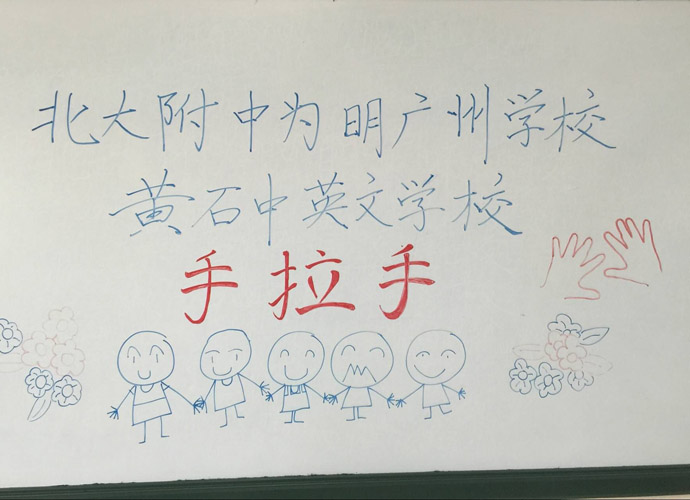 北大附中为明广州学校
黄石中英文学校
手拉手